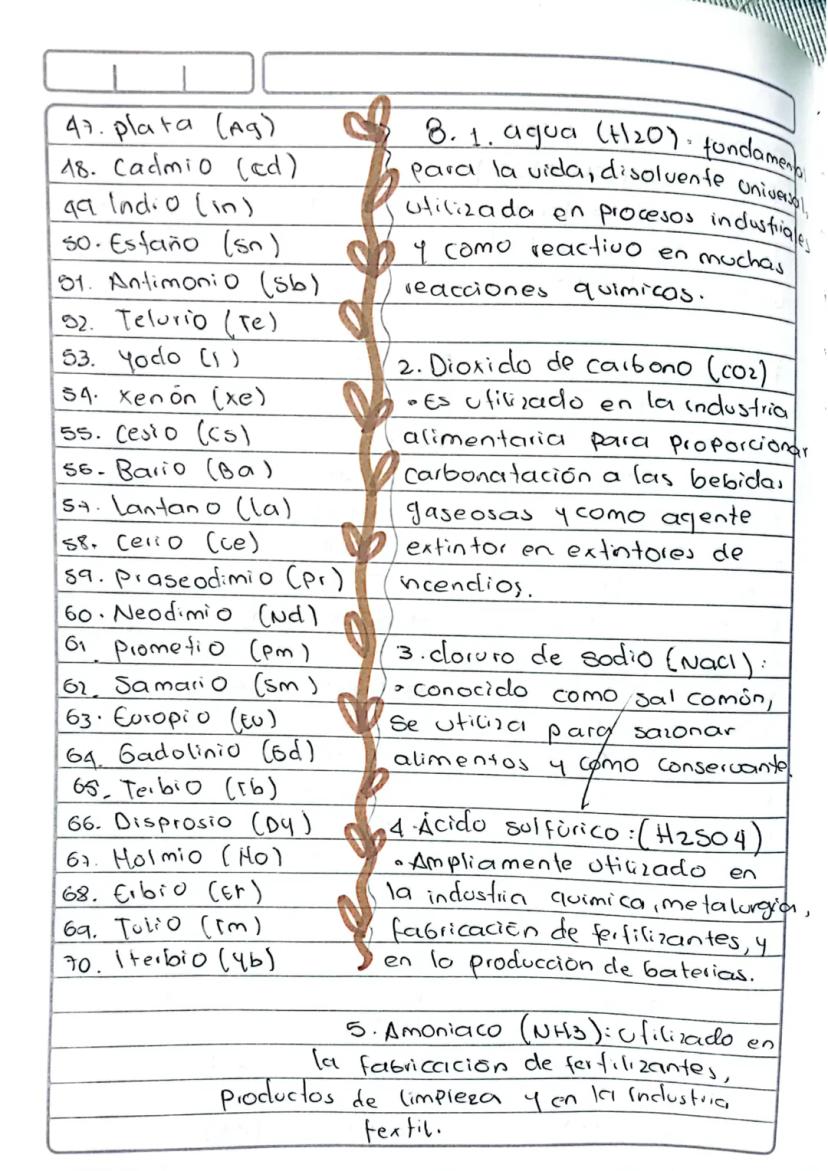 47. plata (Ag)
48. Cadmio (cd)
49 Indio (in)
50. Estaño (sn)
51. Antimonio (Sb)
52. Telurio (Te)
53. yodo (I)
54. xenón (xe)
55. Cesio (Cs)
56. Bario (Ba)
57. lantano (la)
58. Cerio (ce)
59. Praseodimio (Pr)
60. Neodimio (Nd)
61. Prometio (Pm)
62. Samario (sm)
63. Europio (EU)
64. Gadolinio (Gd)
65. Terbio (Tb)
66. Disprosio (Dy)
67. Holmio (Ho)
68. Erbio (Er)
69. Tulio (Tm)
70. Iterbio (yb)
8. 1. agua (H2O): fundamental
para la vida, disolvente universal,
utilizada en procesos industriales
y como reactivo en muchas
reacciones quimicos.
2. Dioxido de carbono (CO2)
• Es utilizado en la industria
alimentaria para proporcionar
carbonatación a las bebidas
gaseosas y como agente
extintor en extintores de
incendios.
3. cloruro de sodio (NaCl):
• conocido como sal común,
se utiliza para sazonar
alimentos y como conservante.
4. Ácido sulfúrico: (H2SO4)
• Ampliamente utilizado en
la industria química, metalurgia,
fabricación de fertilizantes, y
en la producción de baterias.
5. Amoniaco (NH3): utilizado en
la fabricación de fertilizantes,
productos de limpieza y en la industria
textil.